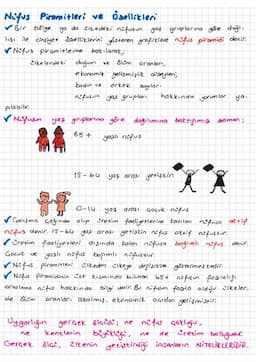 Nüfus Piramitleri ve Özellikleri
✓ Bir bölge ya da ülkedeki nüfusun yaş gruplarına göre dağı-
lışı ile cinsiyet özelliklerini gösteren grafiklere nüfus piramidi denir.
✓ Nüfus piramitlerine bakılarak;
ülkelerdeki doğum ve ölüm oranları,
ekonomik gelişmişlik düzeyleri,
kadın ve erkek sayıları
nüfusun yaş grupları hakkında yorumlar ya-
pılabilir.
✓ Nüfusun yaş gruplarına göre dağılımına baktığımız zaman;
65+ yaşlı nüfus
15-64 yaş arası yetişkin
0-14 yaş arası çocuk nüfus
✓ Çalışma çağında olup üretim faaliyetlerine katılan nüfusa aktif
nüfus denir. 15-64 yaş arası yetişkin nüfus aktif nüfustur.
✓ Üretim faaliyetleri dışında kalan nüfusa bağımlı nüfus denir.
Çocuk ve yaşlı nüfus bağımlı nüfustur.
✓ Nüfus piramitleri ülkeden ülkeye değişiklik göstermektedir.
✓ Nüfus piramidinin üst kısmında bulunan 65+ nüfusun fazlalığı
ortalama nüfus hakkında bilgi verir. Bu nüfusun fazla olduğu ülkeler-
de ölüm oranları azalmış, ekonomik açıdan gelişmiştir.
Uygarlığın gerçek ölçüsü; ne nüfus çokluğu,
ne kentlerin büyüklüğü, ne de üretim bolluğudur
Gerçek ölçü, ülkenin yetiştirdiği insanların NİTELİKLERİDİR.